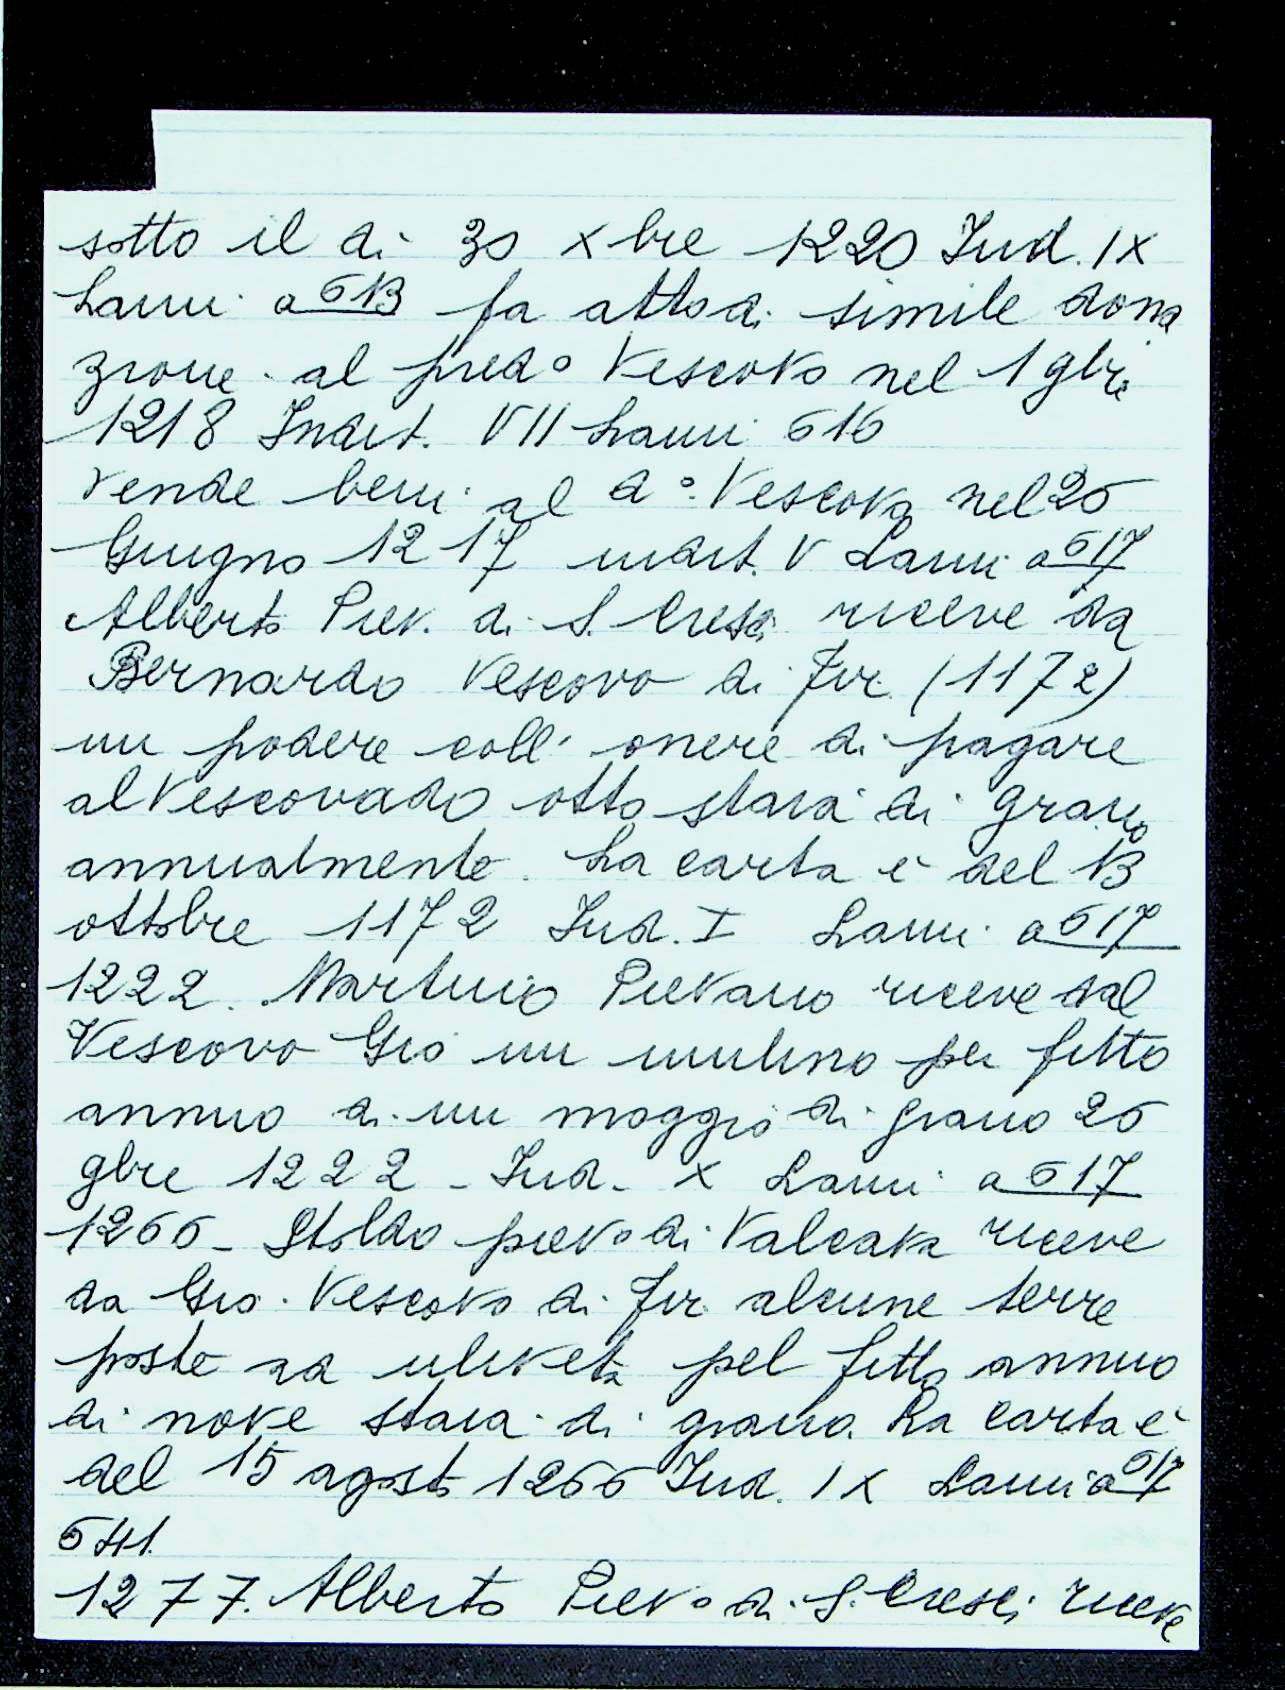 sotto il di 30 xbre 1220 Ind. IX
Lami a 613 fa atto di simile dona
zione al pred° Vescovo nel 1 9bre
1218 Indit. VII Lami 616
vende beni al d°. Vescovo nel 26
Giugno 1217 indit. V Lami a 617
Alberto Piev. di S. Cresci riceve da
Bernardo Vescovo di Fir. (1172)
un podere coll' onere di pagare
al Vescovado otto staia di grano
annualmente. La carta è del 13
ottobre 1172 Ind. I Lami a 617
1222. Martino Pievano riceve dal
Vescovo Gio un mulino per fitto
annuo di un moggio di grano 26
9bre 1222 - Ind. X Lami a 617
1266 - Stoldo piev° di Valcava riceve
da Gio. Vescovo di Fir. alcune terre
poste ad uliveta pel fitto annuo
di nove staia di grano. La carta è
del 15 agosto 1266 Ind. IX Lami a 617
641.
1277. Alberto Piev° di S. Cresci riceve